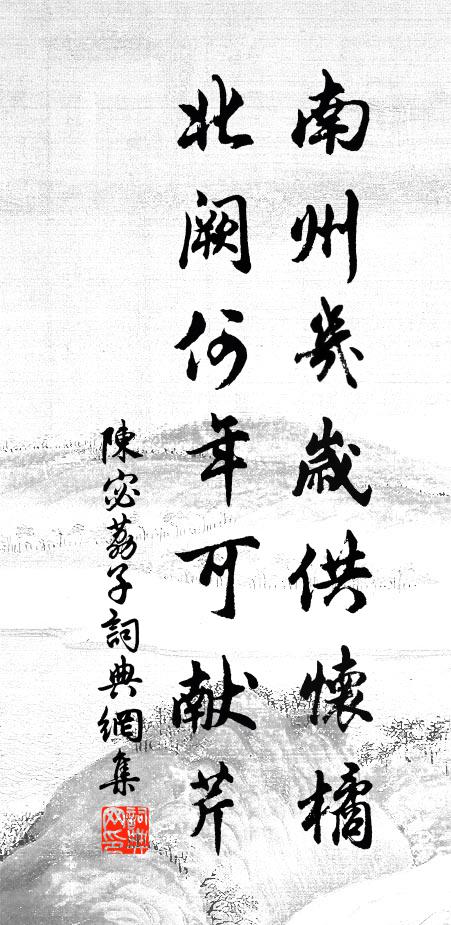 南州幾歲供懷橘
北阙何年可献芹
陳宓荔子詞典網集